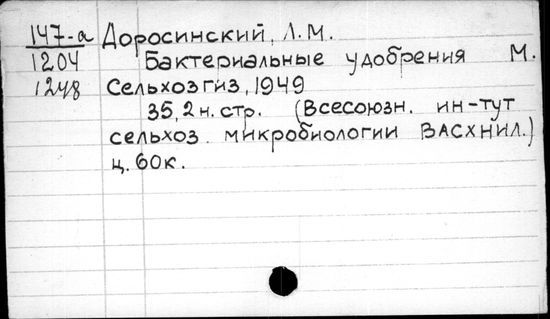 147-а Доросинский, Л.М.
1204 Бактериальные удобрения М.
1248 Сельхозгиз, 1949
35, 2 н. стр. (Всесоюзн. ин-тут
сельхоз. микробиологии ВАСХНИЛ.)
ц. 60к.